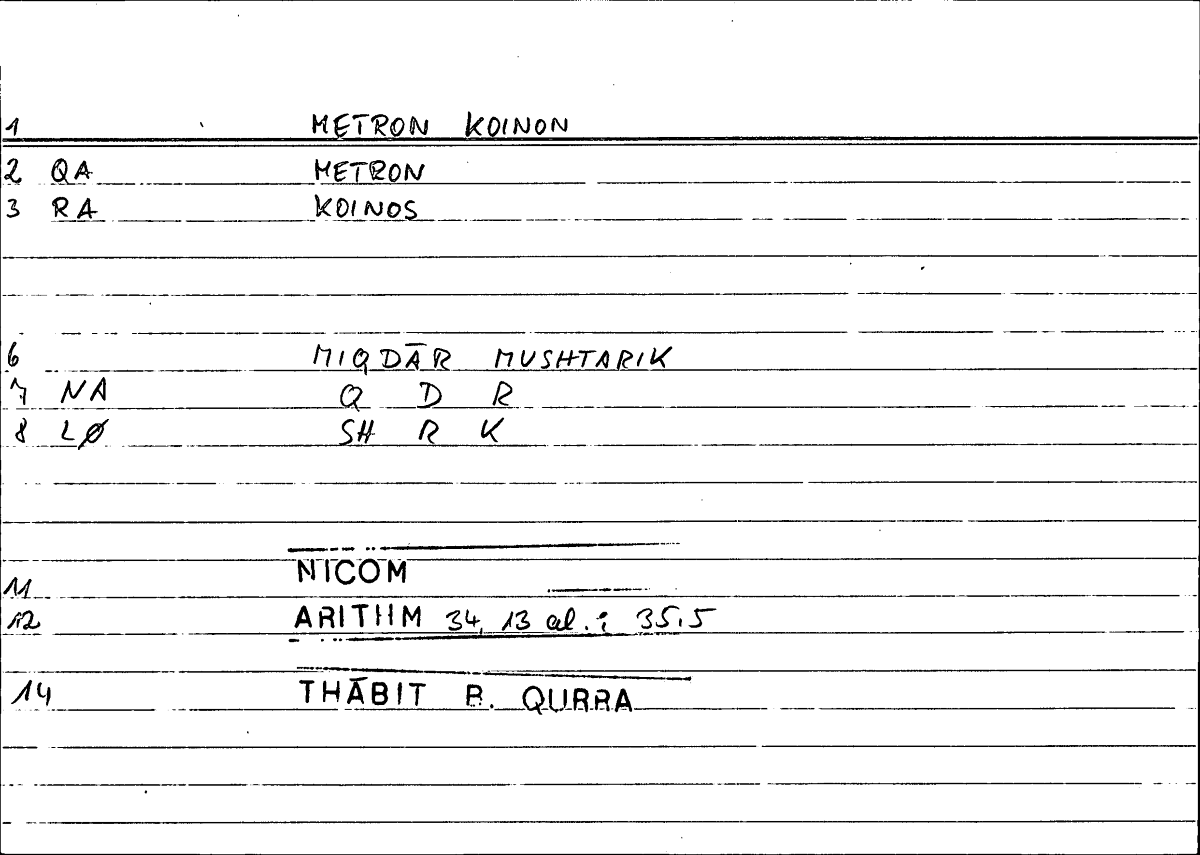 1 METRON KOINON
2 QA METRON
3 RA KOINOS
6 MIQDĀR MUSHTARIK
7 NA Q D R
8 LØ SH R K
11 NICOM
12 ARITHM 34,13 al.; 35.5
14 THĀBIT B. QURRA